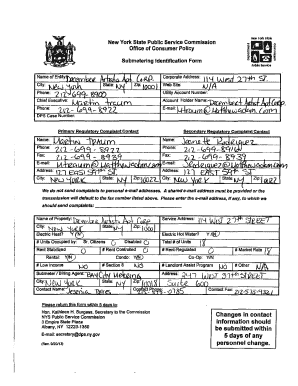 New York State Public Service Commission
Office of Consumer Policy
Submetering Identification Form
Name of Entity: December Artists Apt Corp. Corporate Address: 114 West 27th St.
City: New York State: NY Zip: 10001 Web Site: N/A
Phone: 212-699-8900 Utility Account Number:
Chief Executive: Martin Traum Account Holder Name: Decembert Artists Apt Corp
Phone: 212-699-8922 E-mail:
DPS Case Number:
Primary Regulatory Complaint Contact Secondary Regulatory Complaint Contact
Name: Martin Traum Name: Rodriguez
Phone: 212-699-8922 Phone: 212-699-8916
Fax: 212-699-8939 Fax: 212-699-8939
E-mail: E-mail:
Address: 127 East 59th St. Address: 127 East 59th St.
City: New York State: NY Zip: 10022 City: New York State: NY Zip: 10022
We do not send complaints to personal e-mail addresses. A shared e-mail must be provided or the
transaction will default to the fax number listed above. Please enter the e-mail address, if any, to which we
should send complaints:
Name of Property: December Artists Apt Corp Service Address: 114 West 27th Street
City: New York State: NY Zip: 10001
Electric Heat? Y/N Electric Hot Water? Y/N
# Units Occupied by: Sr. Citizens Disabled Total # of Units 18
Rent Stabilized 0 # Rent Controlled 0 # Rent-Regulated 0 # Market Rate 18
Rental: Y/N Condo: Y/N Co-Op: Y/N
# Low Income N # Section 8 N # Landlord Assist Program N # Other N/A
Submeter / Billing Agent: Bay City Metering Address: 247 West 37th Street
City: New York State: NY Zip: 10018 Suite 600
Contact Name: Bates Contact Phone: Contact Fax:
Please return this form within 5 days to:
Hon. Kathleen H. Burgess, Secretary to the Commission
NYS Public Service Commission
3 Empire State Plaza
Albany, NY 12223-1350
E-mail: secretary@dps.ny.gov
Changes in contact
information should
be submitted within
5 days of any
personnel change.